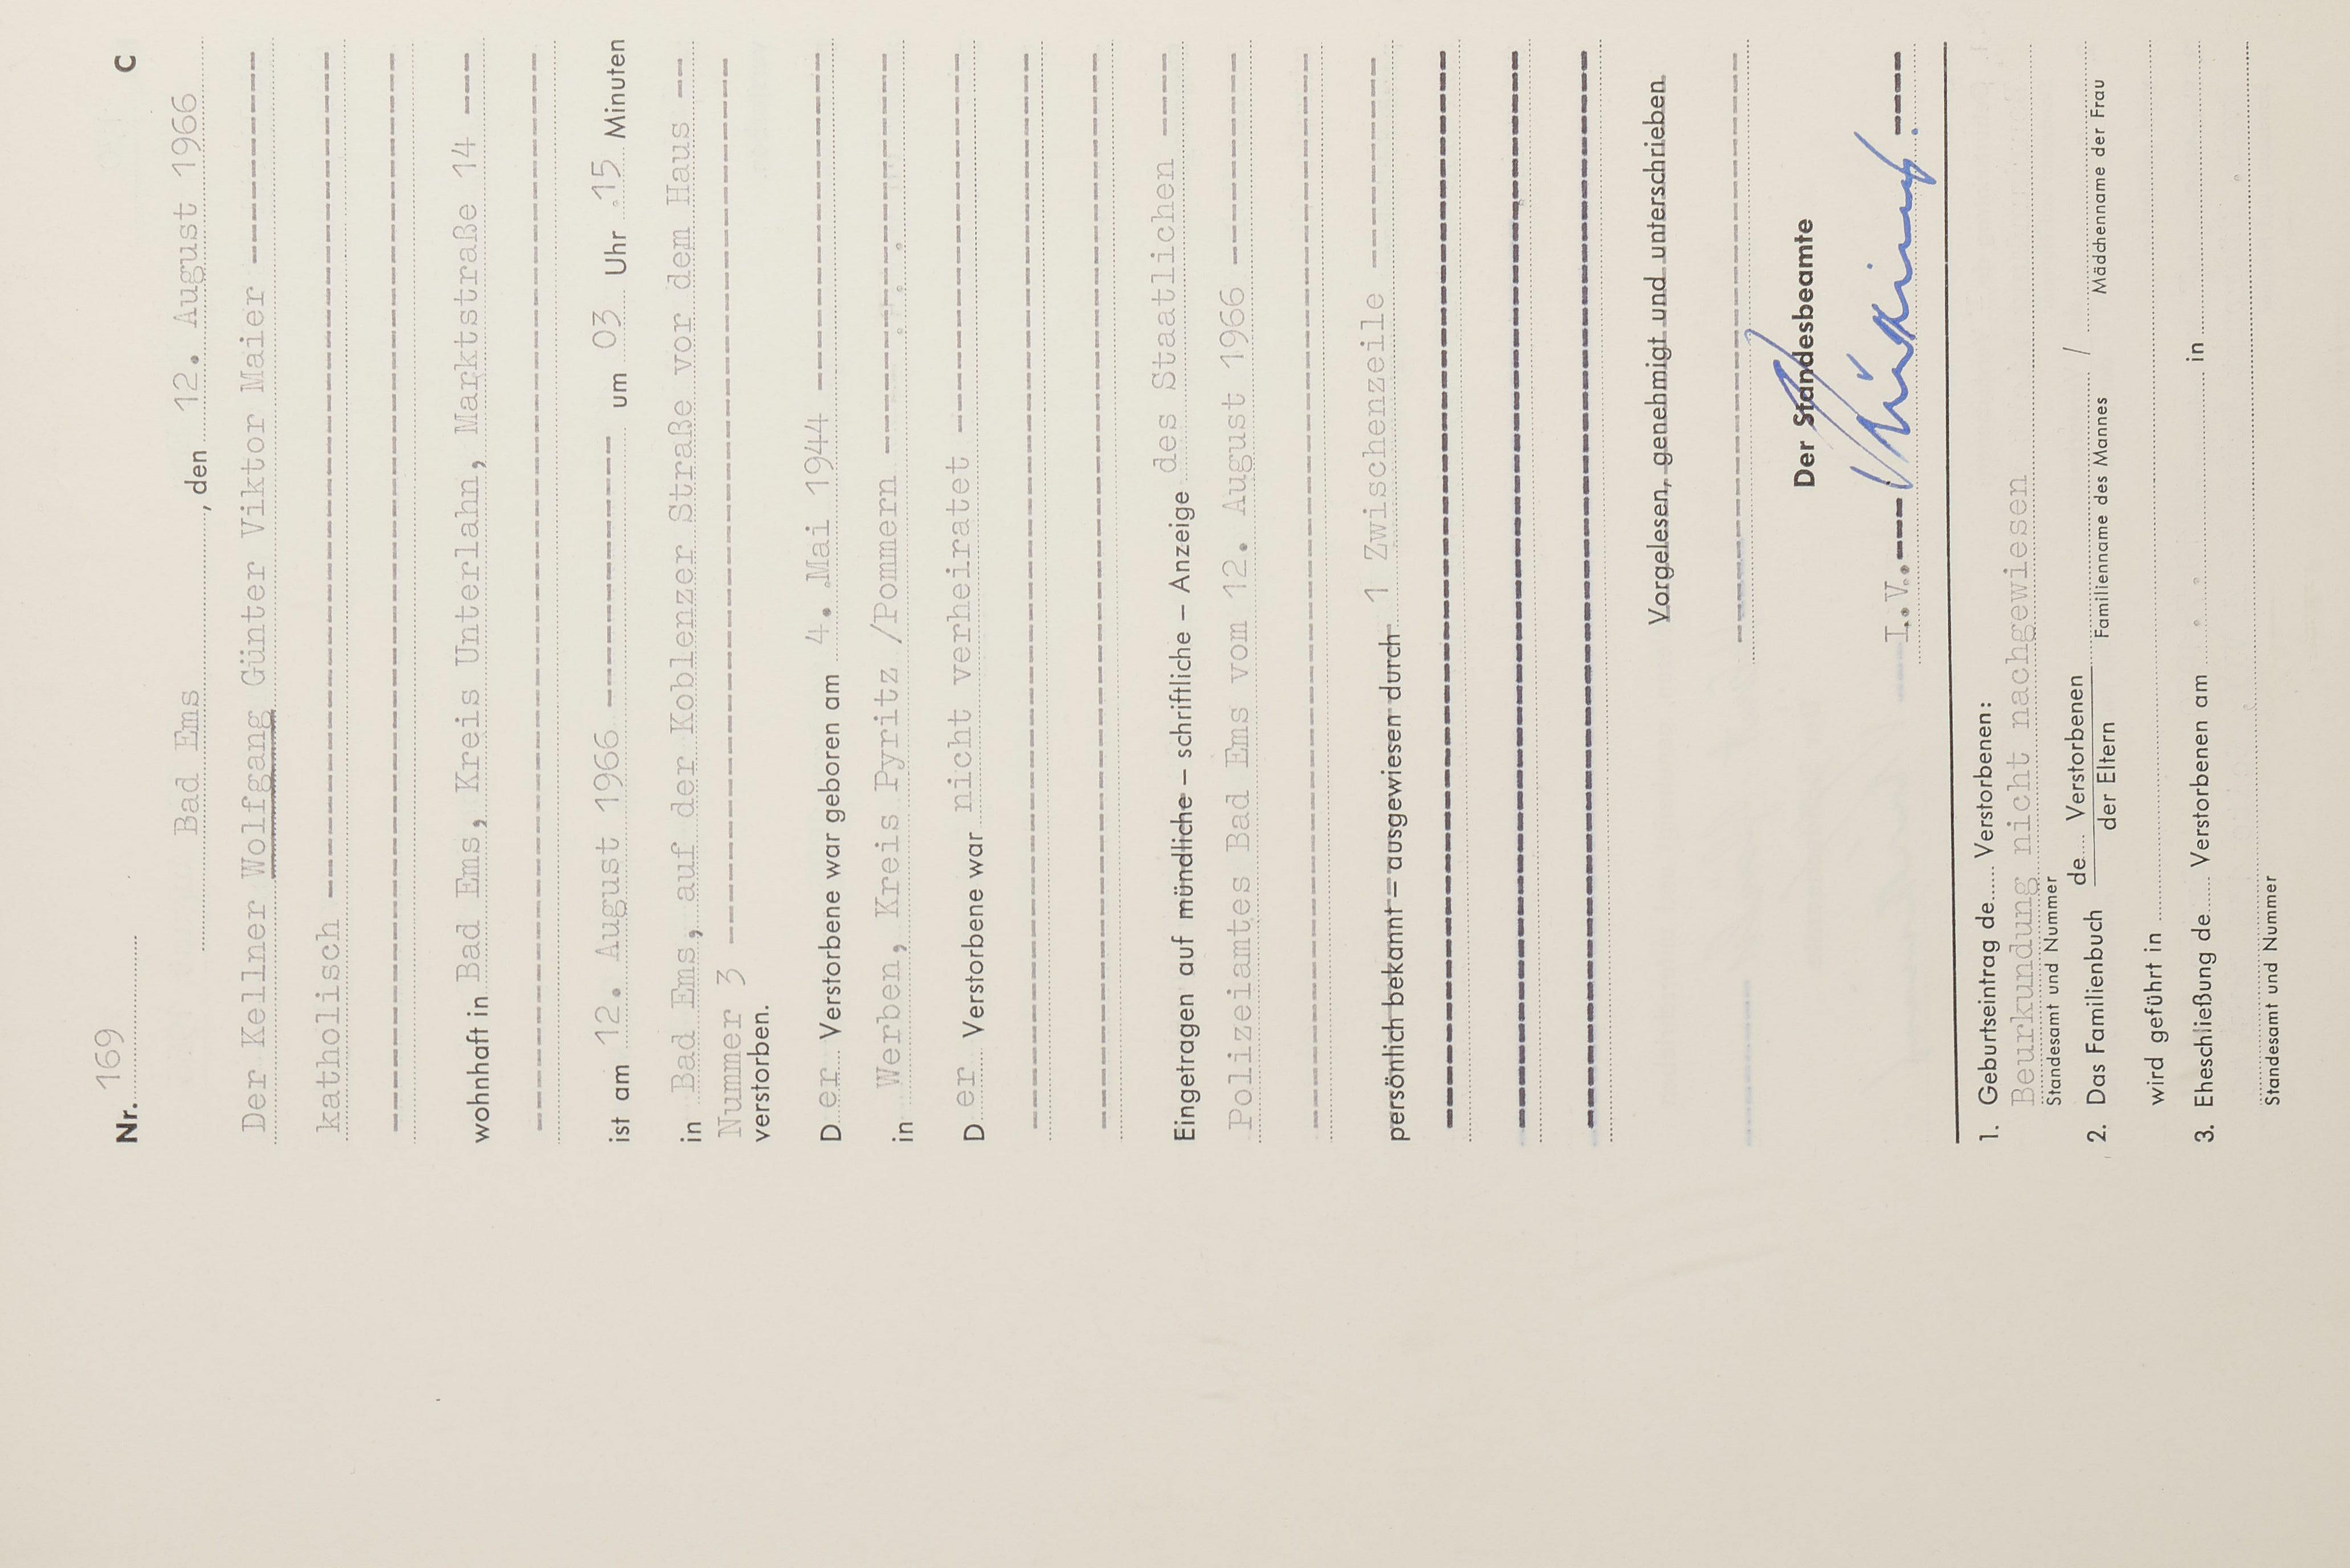 Nr. 169 C
Bad Ems, den 12. August 1966
Der Kellner Wolfgang Günter Viktor Maier
katholisch
wohnhaft in Bad Ems, Kreis Unterlahn, Marktstraße 14
ist am 12. August 1966 um 03 Uhr 15 Minuten
in Bad Ems, auf der Koblenzer Straße vor dem Haus
Nummer 3
verstorben.
Der Verstorbene war geboren am 4. Mai 1944
in Werben, Kreis Pyritz /Pommern
Der Verstorbene war nicht verheiratet
Eingetragen auf mündliche – schriftliche – Anzeige des Staatlichen
Polizeiamtes Bad Ems vom 12. August 1966
persönlich bekannt – ausgewiesen durch 1 Zwischenzeile
Vorgelesen, genehmigt und unterschrieben
Der Standesbeamte
I.V.
1. Geburtseintrag de..... Verstorbenen:
Beurkundung nicht nachgewiesen
Standesamt und Nummer
2. Das Familienbuch de.... Verstorbenen / der Eltern /
Familienname des Mannes Mädchenname der Frau
wird geführt in
3. Eheschließung de..... Verstorbenen am in
Standesamt und Nummer